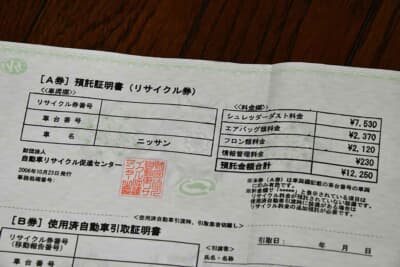 [A券] 預託証明書 (リサイクル券)
<<車両欄>>
リサイクル券番号
車台番号
車名 ニッサン
財団法人
自動車リサイクル促進センター
2006年10月23日 発行
事務局備考:
<<料金欄>>
シュレッダーダスト料金 ¥7,530
エアバッグ類料金 ¥2,370
フロン類料金 ¥2,120
情報管理料金 ¥230
預託金額合計 ¥12,250
<使用済自動車引渡時、引取業者切離し>
[B券] 使用済自動車引取証明書
リサイクル券番号
(移動報告番号)
車台番号
引取日: 年 月 日
<引渡者>
氏名・名称